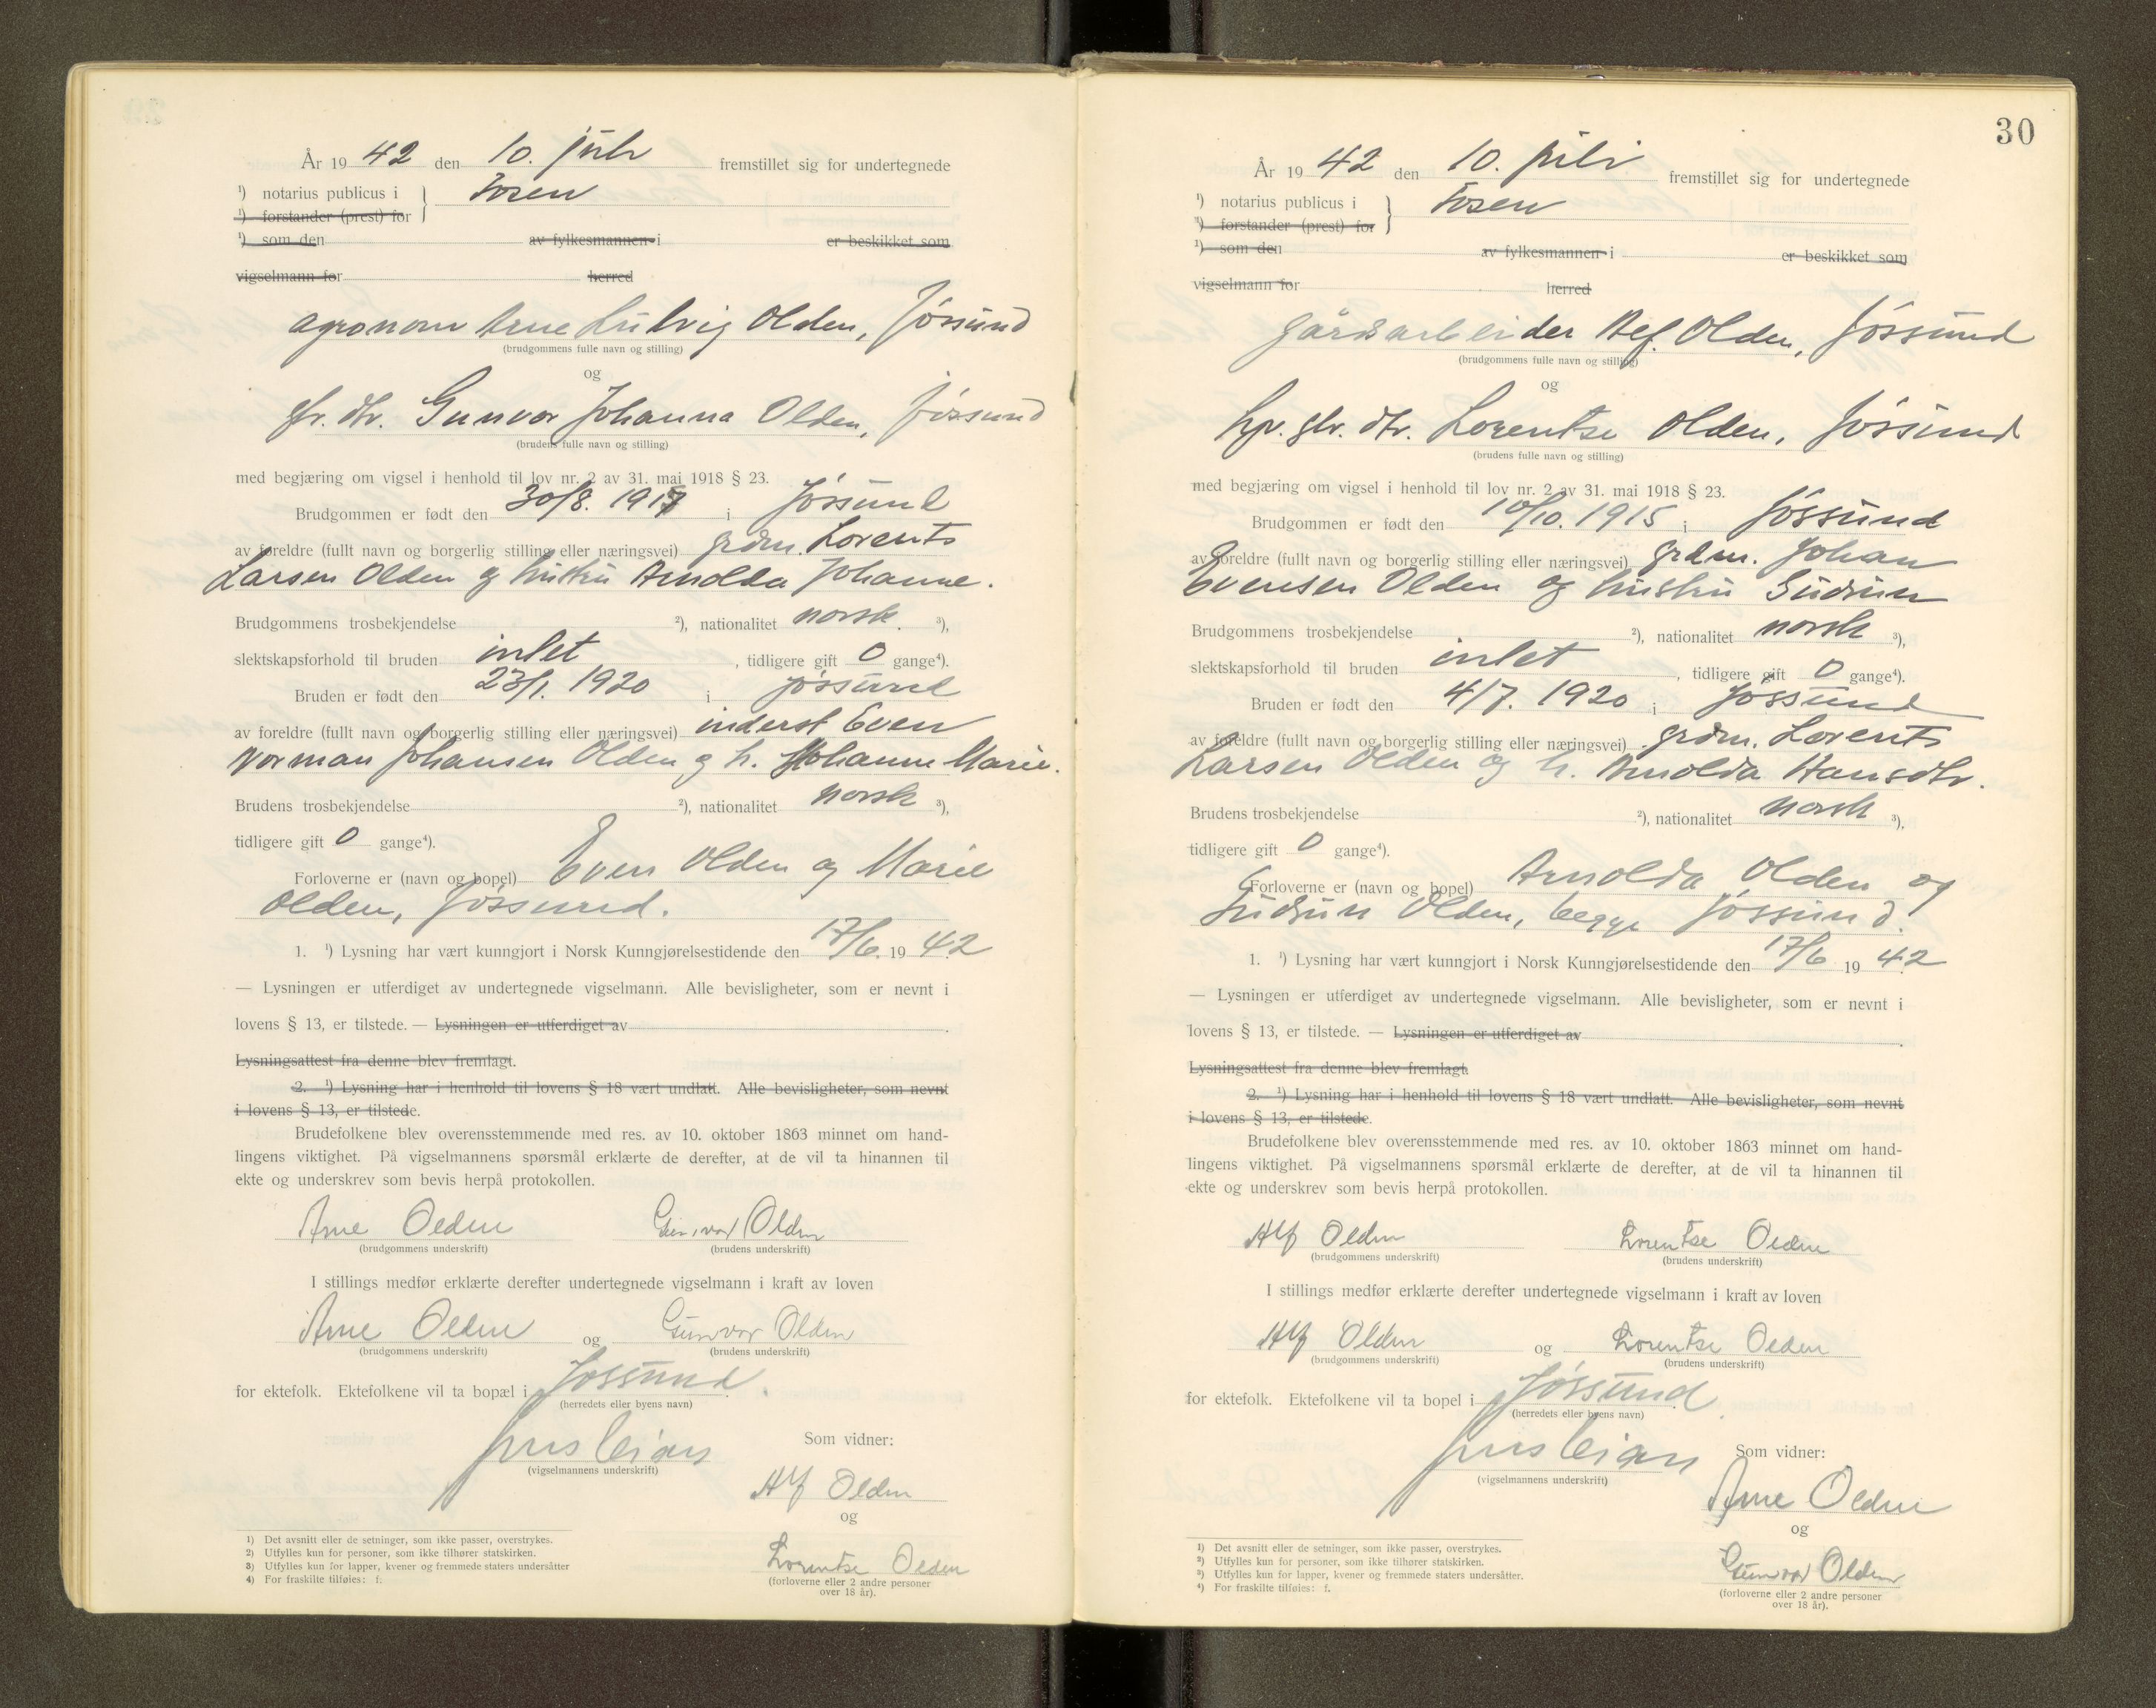 År 1942 den 10. juli fremstillet sig for undertegnede
¹) notarius publicus i } Fosen
¹) forstander (prest) for
¹) som den av fylkesmannen i er beskikket som
vigselmann for herred
agronom Arne Ludvig Olden, Jössund
(brudgommens fulle navn og stilling)
og
gr. dtr. Gunvor Johanna Olden, Jössund
(brudens fulle navn og stilling)
med begjæring om vigsel i henhold til lov nr. 2 av 31. mai 1918 § 23.
Brudgommen er født den 30/8. 1917 i Jössund
av foreldre (fullt navn og borgerlig stilling eller næringsvei) grdm. Lorents
Larsen Olden og hustru Arnolda Johanne.
Brudgommens trosbekjendelse ²), nationalitet norsk. ³),
slektskapsforhold til bruden intet, tidligere gift 0 gange⁴).
Bruden er født den 23/1. 1920 i Jössund
av foreldre (fullt navn og borgerlig stilling eller næringsvei) inderst Even
Norman Johansen Olden og h. Johanne Marie.
Brudens trosbekjendelse ²), nationalitet norsk ³),
tidligere gift 0 gange⁴).
Forloverne er (navn og bopel) Even Olden og Marie
Olden, Jössund.
1. ¹) Lysning har vært kunngjort i Norsk Kunngjørelsestidende den 17/6. 1942
— Lysningen er utferdiget av undertegnede vigselmann. Alle bevisligheter, som er nevnt i
lovens § 13, er tilstede. — Lysningen er utferdiget av .
Lysningsattest fra denne blev fremlagt.
2. ¹) Lysning har i henhold til lovens § 18 vært undlatt. Alle bevisligheter, som nevnt
i lovens § 13, er tilstede.
Brudefolkene blev overensstemmende med res. av 10. oktober 1863 minnet om hand-
lingens viktighet. På vigselmannens spørsmål erklærte de derefter, at de vil ta hinannen til
ekte og underskrev som bevis herpå protokollen.
Arne Olden Gunvor Olden
(brudgommens underskrift) (brudens underskrift)
I stillings medfør erklærte derefter undertegnede vigselmann i kraft av loven
Arne Olden og Gunvor Olden
(brudgommens underskrift) (brudens underskrift)
for ektefolk. Ektefolkene vil ta bopæl i Jössund.
(herredets eller byens navn)
Som vidner:
(vigselmannens underskrift)
Alf Olden
og
Lorentse Olden
(forloverne eller 2 andre personer
over 18 år).
1) Det avsnitt eller de setninger, som ikke passer, overstrykes.
2) Utfylles kun for personer, som ikke tilhører statskirken.
3) Utfylles kun for lapper, kvener og fremmede staters undersåtter
4) For fraskilte tilføies: f.
30
År 1942 den 10. juli fremstillet sig for undertegnede
¹) notarius publicus i } Fosen
¹) forstander (prest) for
¹) som den av fylkesmannen i er beskikket som
vigselmann for herred
gårdsarbeider Alf Olden, Jössund
(brudgommens fulle navn og stilling)
og
hp. gr. dtr. Lorentse Olden, Jössund
(brudens fulle navn og stilling)
med begjæring om vigsel i henhold til lov nr. 2 av 31. mai 1918 § 23.
Brudgommen er født den 10/10. 1915 i Jössund
av foreldre (fullt navn og borgerlig stilling eller næringsvei) grdm. Johan
Evensen Olden og hustru Gudrun
Brudgommens trosbekjendelse ²), nationalitet norsk ³),
slektskapsforhold til bruden intet, tidligere gift 0 gange⁴).
Bruden er født den 4/7. 1920 i Jössund
av foreldre (fullt navn og borgerlig stilling eller næringsvei) grdm. Lorents
Larsen Olden og h. Arnolda Hansdtr.
Brudens trosbekjendelse ²), nationalitet norsk ³),
tidligere gift 0 gange⁴).
Forloverne er (navn og bopel) Arnolda Olden og
Gudrun Olden, begge Jössund.
1. ¹) Lysning har vært kunngjort i Norsk Kunngjørelsestidende den 17/6 1942
— Lysningen er utferdiget av undertegnede vigselmann. Alle bevisligheter, som er nevnt i
lovens § 13, er tilstede. — Lysningen er utferdiget av .
Lysningsattest fra denne blev fremlagt
2. ¹) Lysning har i henhold til lovens § 18 vært undlatt. Alle bevisligheter, som nevnt
i lovens § 13, er tilstede.
Brudefolkene blev overensstemmende med res. av 10. oktober 1863 minnet om hand-
lingens viktighet. På vigselmannens spørsmål erklærte de derefter, at de vil ta hinannen til
ekte og underskrev som bevis herpå protokollen.
Alf Olden Lorentse Olden
(brudgommens underskrift) (brudens underskrift)
I stillings medfør erklærte derefter undertegnede vigselmann i kraft av loven
Alf Olden og Lorentse Olden
(brudgommens underskrift) (brudens underskrift)
for ektefolk. Ektefolkene vil ta bopel i Jössund.
(herredets eller byens navn)
Som vidner:
(vigselmannens underskrift)
Arne Olden
og
Gunvor Olden
(forloverne eller 2 andre personer
over 18 år).
1) Det avsnitt eller de setninger, som ikke passer, overstrykes.
2) Utfylles kun for personer, som ikke tilhører statskirken.
3) Utfylles kun for lapper, kvener og fremmede staters undersåtter.
4) For fraskilte tilføies: f.